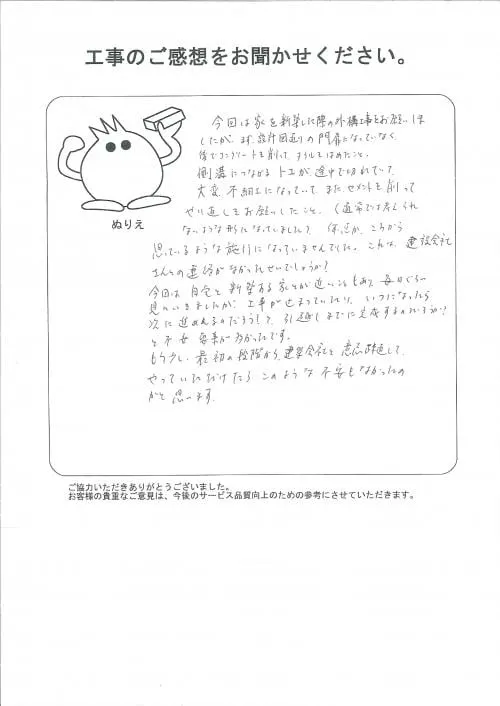 工事のご感想をお聞かせください。
今回は家を新築した際の外構工事をお願いしま
したが、まず、設計図通りの門扉になっていなく、
後でコンクリートを削って、タイルをはめたこと。
側溝につながるトエが途中で切れていて、
大変、不細工になっていて、また、セメントを削って
やり直しをお願いしたこと。(通常では考えられ
ないような形になっていました)
こちらから
思っているような施行になっていませんでした。これは、建設会社
さんとの連絡がなかったせいでしょうか?
今回は自宅と新築する家とが近いこともあり、毎日ぐらい
見にいきましたが、工事が止まっていたり、いつになったら
次に進めるのだろう?、引越しまでに完成するのだろうか?
と不安要素が多かったです。
もう少し、最初の段階から、建築会社と意志疎通して、
やっていただけたらこのような不安もなかったの
かと思います。
ぬりえ
ご協力いただきありがとうございました。
お客様の貴重なご意見は、今後のサービス品質向上のための参考にさせていただきます。